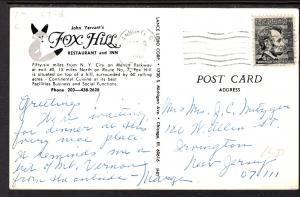 John Yervant's
FOX HILL
RESTAURANT and INN
Fiftyfive miles from N. Y. City on Merritt Parkway
exit 40, 15 miles North on Route No. 7, Fox Hill
is situated on top of a hill, surrounded by 60 rolling
acres. Continental Cuisine at its best
Facilities Business and Social Functions.
Phone 203-438-2620
POST CARD
ADDRESS
Greetings!
We're waiting
for dinner at this
very nice place
It reminds me a
bit of Mt. Vernon
from the outside
Mr. & Mrs. J. C. Metzger
126 W. Allen St.
Irvington
New Jersey
07111